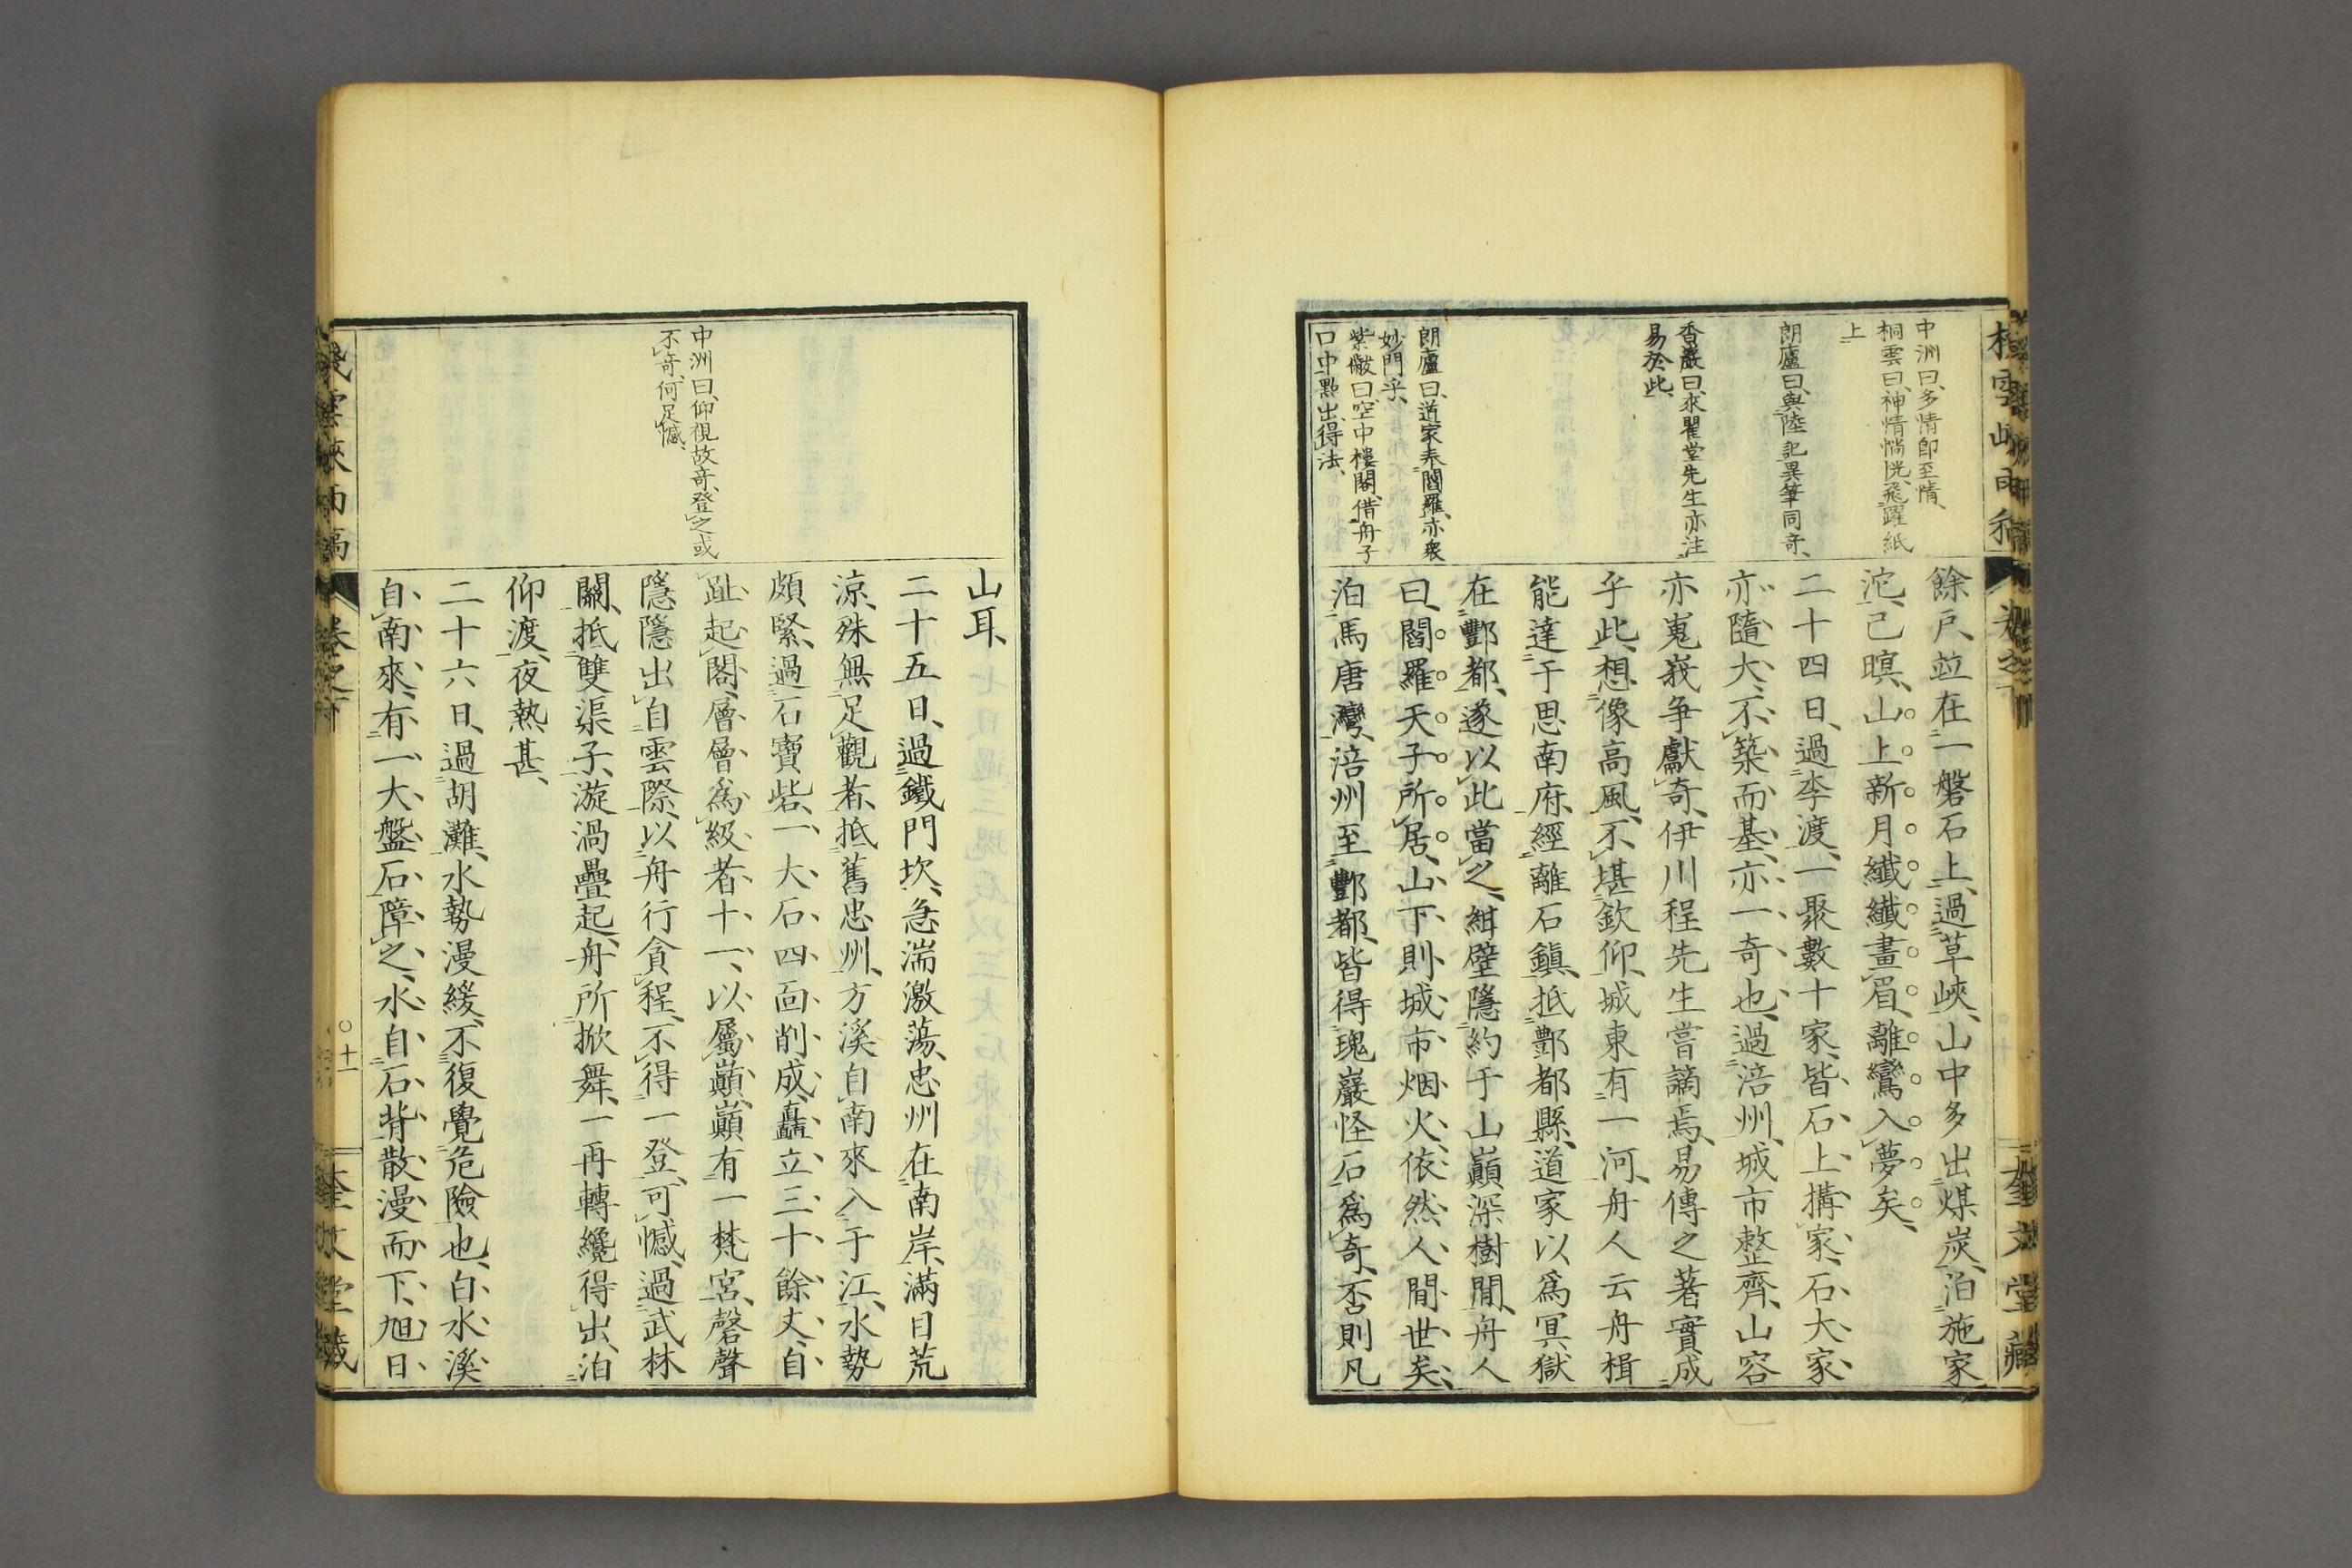 中洲曰、多情卽至情、
桐雲曰、神情惝恍、飛躍紙
上
朗廬曰、與陸記異筆同奇、
香巖曰、來瞿堂先生亦注
易於此、
朗廬曰、道家奉閻羅、亦衆
妙門乎、
紫㵎曰、空中樓閣、借舟子
口中點出、得法、
餘戶、竝在一磐石上、過草峽、山中多出煤炭、泊施家
沱、已暝、山上新月纖纖畫眉、離鸞入夢矣、
二十四日、過李渡、一聚數十家、皆石上搆家、石大家
亦隨大、不築而基、亦一奇也、過涪州、城市整齊、山容
亦嵬峩争獻奇、伊川程先生嘗謫焉、易傳之著實成
乎此、想像高風、不堪欽仰、城東有一河、舟人云舟楫
能達于思南府、經離石鎭、抵酆都縣、道家以爲冥獄
在酆都、遂以此當之、紺壁隱約于山巓深樹間、舟人
曰、閻羅天子所居、山下則城市烟火、依然人間世矣、
泊馬唐灣、涪州至酆都、皆得瑰巖怪石爲奇、否則凡
山耳、
二十五日、過鐵門坎、急湍激蕩、忠州在南岸、滿目荒
涼、殊無足觀者、抵舊忠州、方溪自南來入于江、水勢
頗緊、過石寶砦、一大石四面削成、矗立三十餘丈、自
趾起閣、層層爲級者十一、以屬巓、巓有一梵宮、磬聲
隱隱出自雲際、以舟行貪程、不得一登、可憾、過武林
關、抵雙渠子、漩渦疊起、舟所掀舞、一再轉纔得出、泊
仰渡、夜熱甚、
二十六日、過胡灘、水勢漫緩、不復覺危險也、白水溪
自南來、有一大盤石障之、水自石背散漫而下、旭日
中洲曰、仰視故奇、登之或
不奇、何足憾、
棧雲峽雨稿
卷之下
〇十一
奎文堂藏